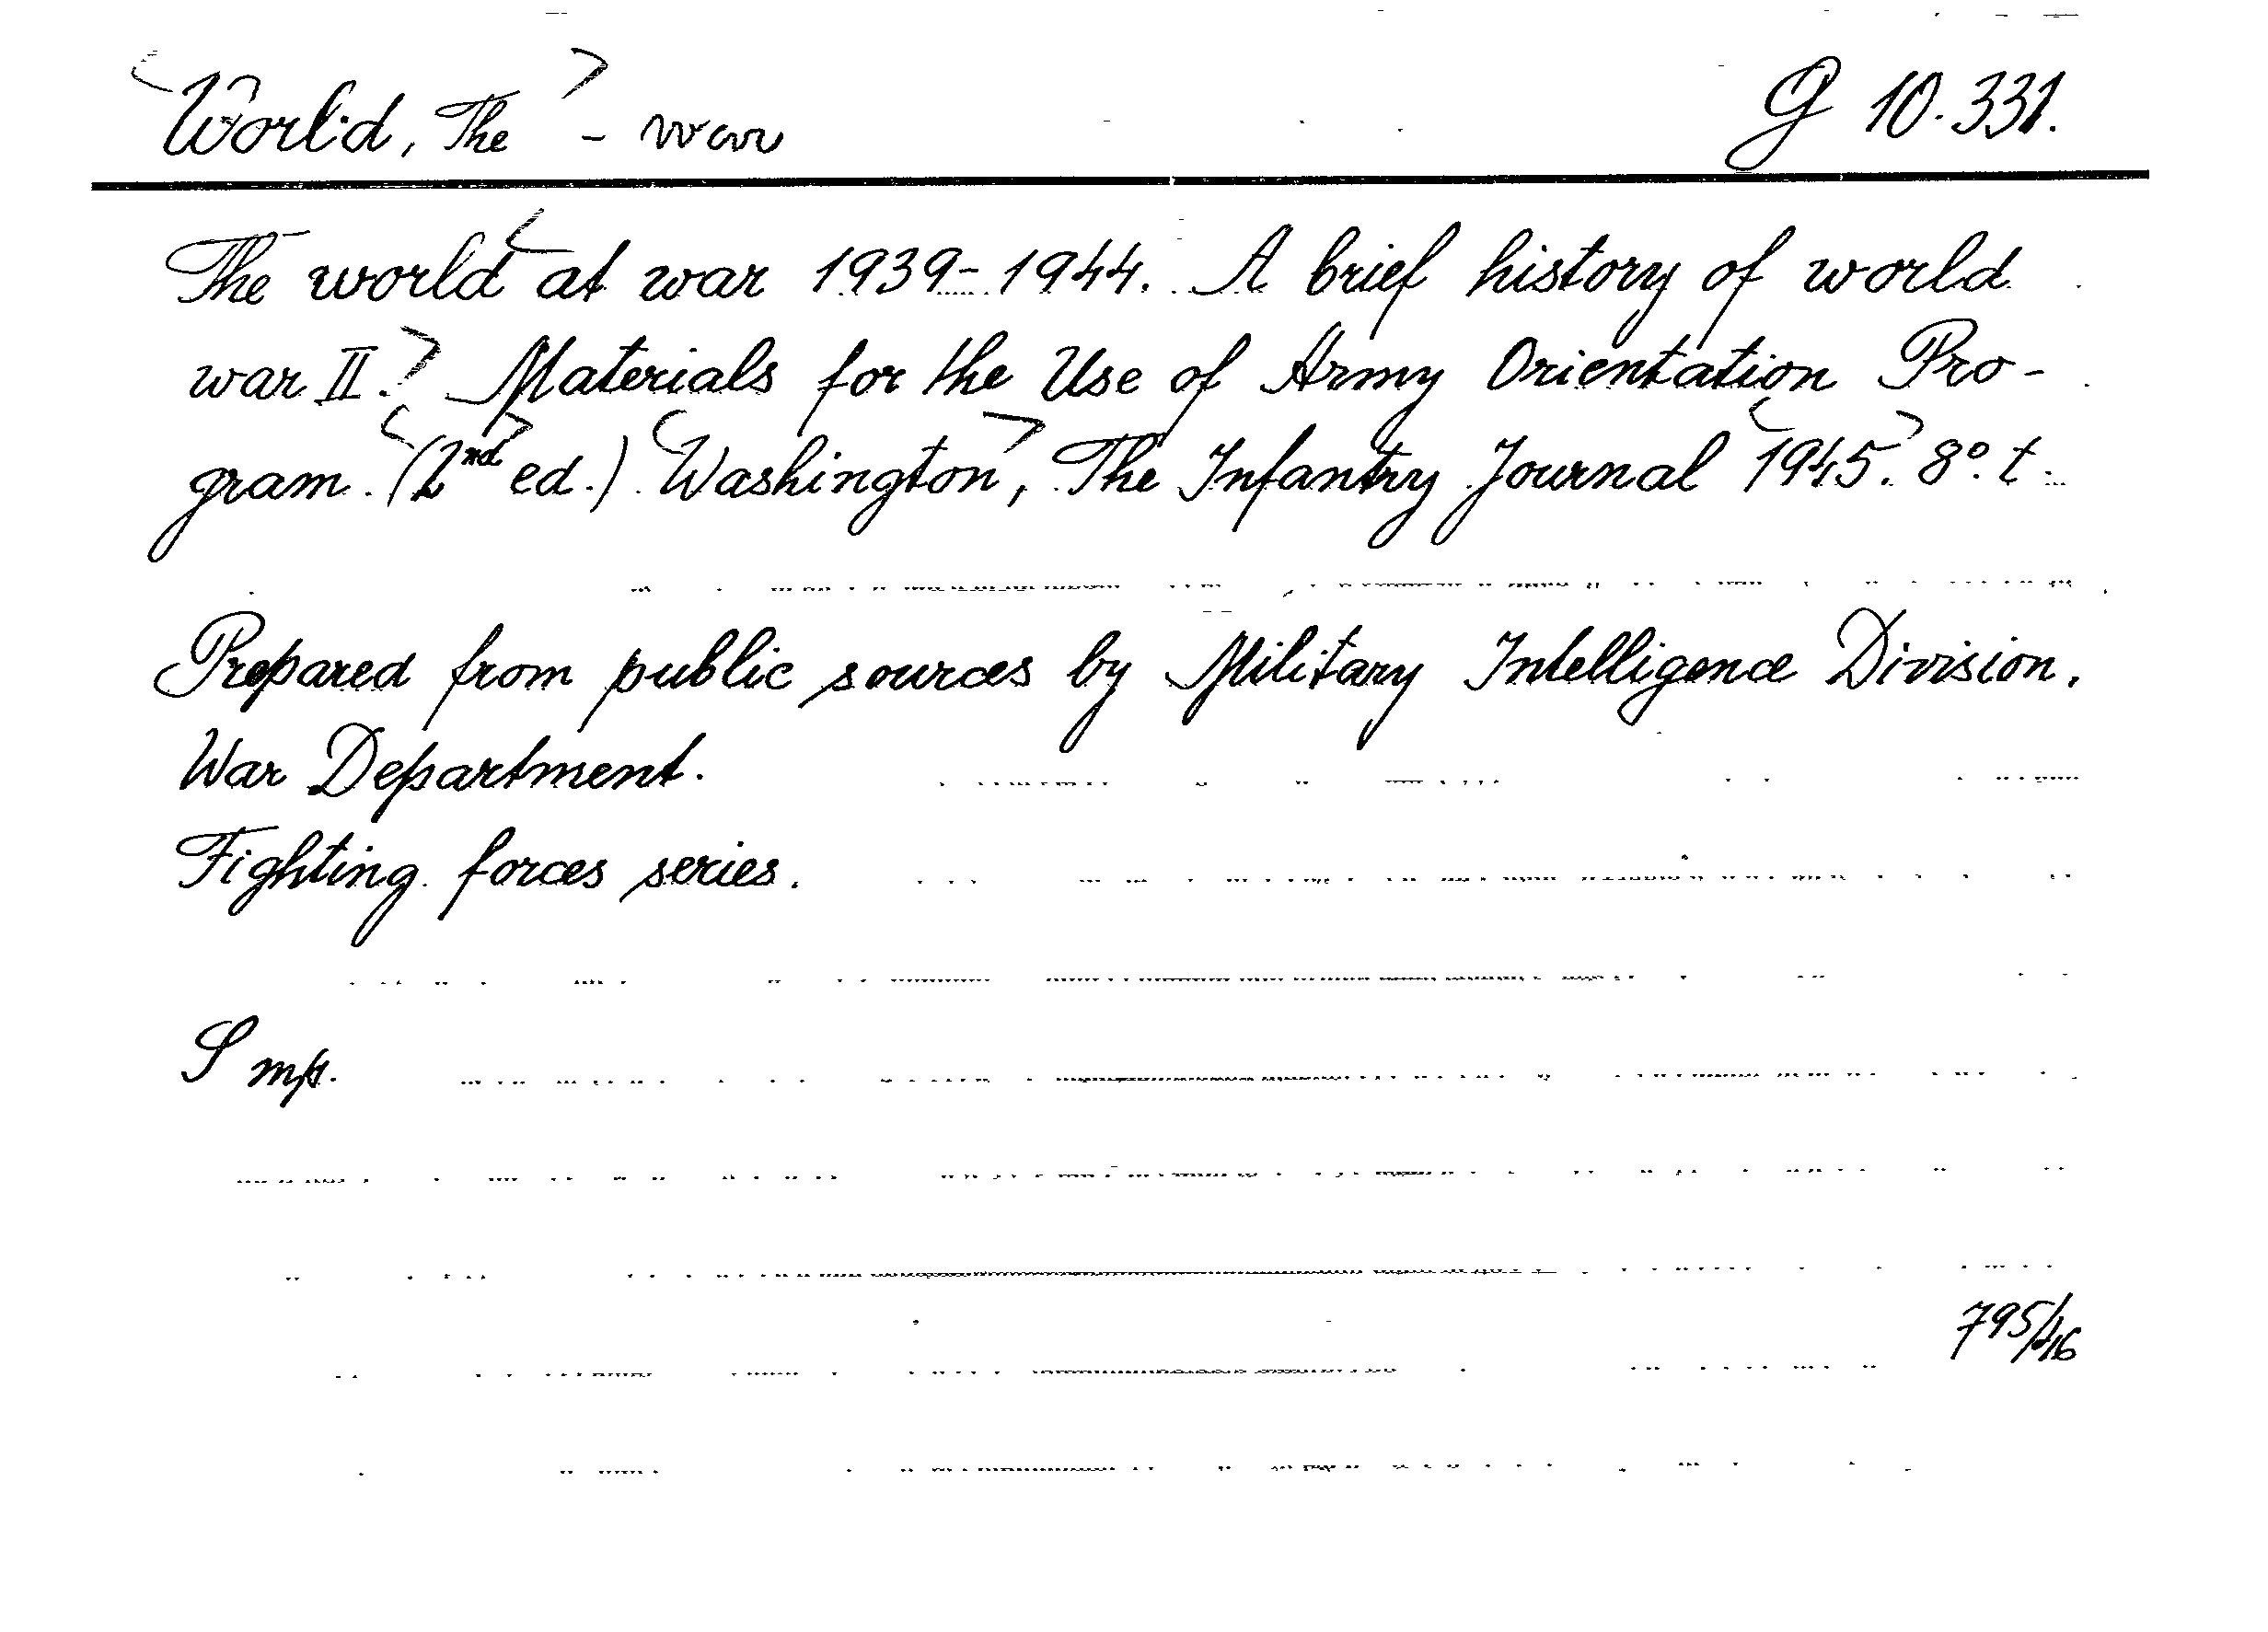 World, The - war G 10.331.
The world at war 1939-1944. A brief history of world
war II. Materials for the Use of Army Orientation Pro-
gram. (2nd ed.) Washington, The Infantry Journal 1945. 8°. t.
Prepared from public sources by Military Intelligence Division,
War Department.
Fighting forces series.
S mp.